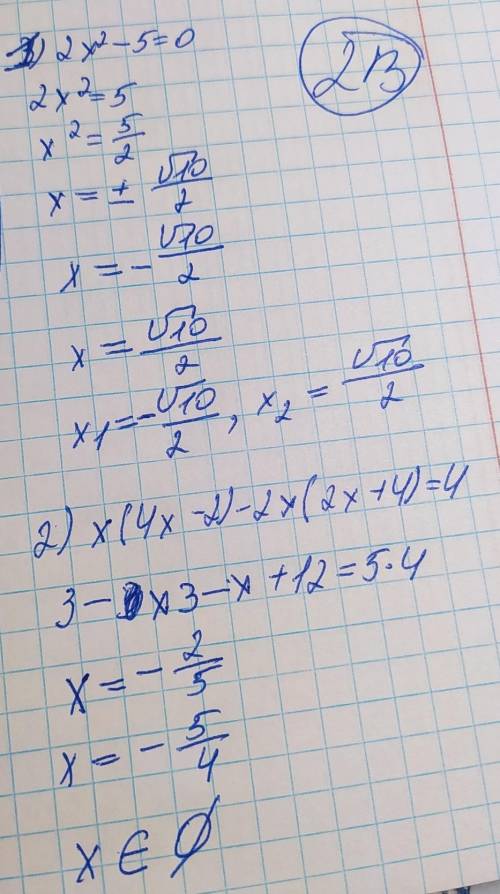 1) 2x² - 5 = 0
2В
2x² = 5
x² = 5/2
x = ± √10/2
x = - √10/2
x = √10/2
x₁ = - √10/2, x₂ = √10/2
2) x(4x - 2) - 2x(2x + 4) = 4
3 - x 3 - x + 12 = 5·4
x = - 2/5
x = - 5/4
x ∈ ∅